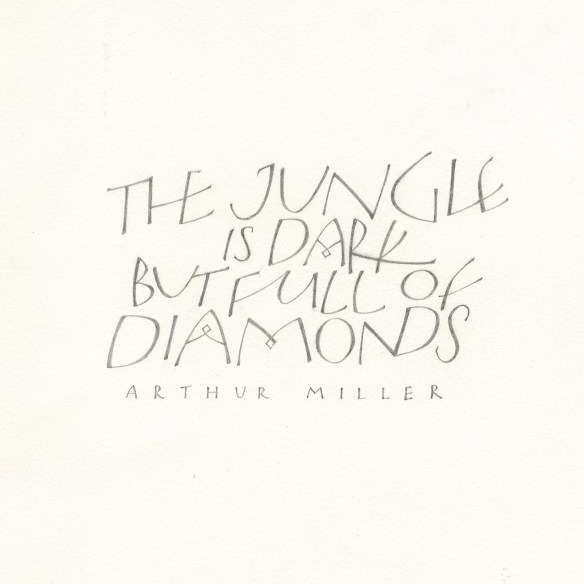 THE JUNGLE
IS DARK
BUT FULL OF
DIAMONDS
ARTHUR MILLER